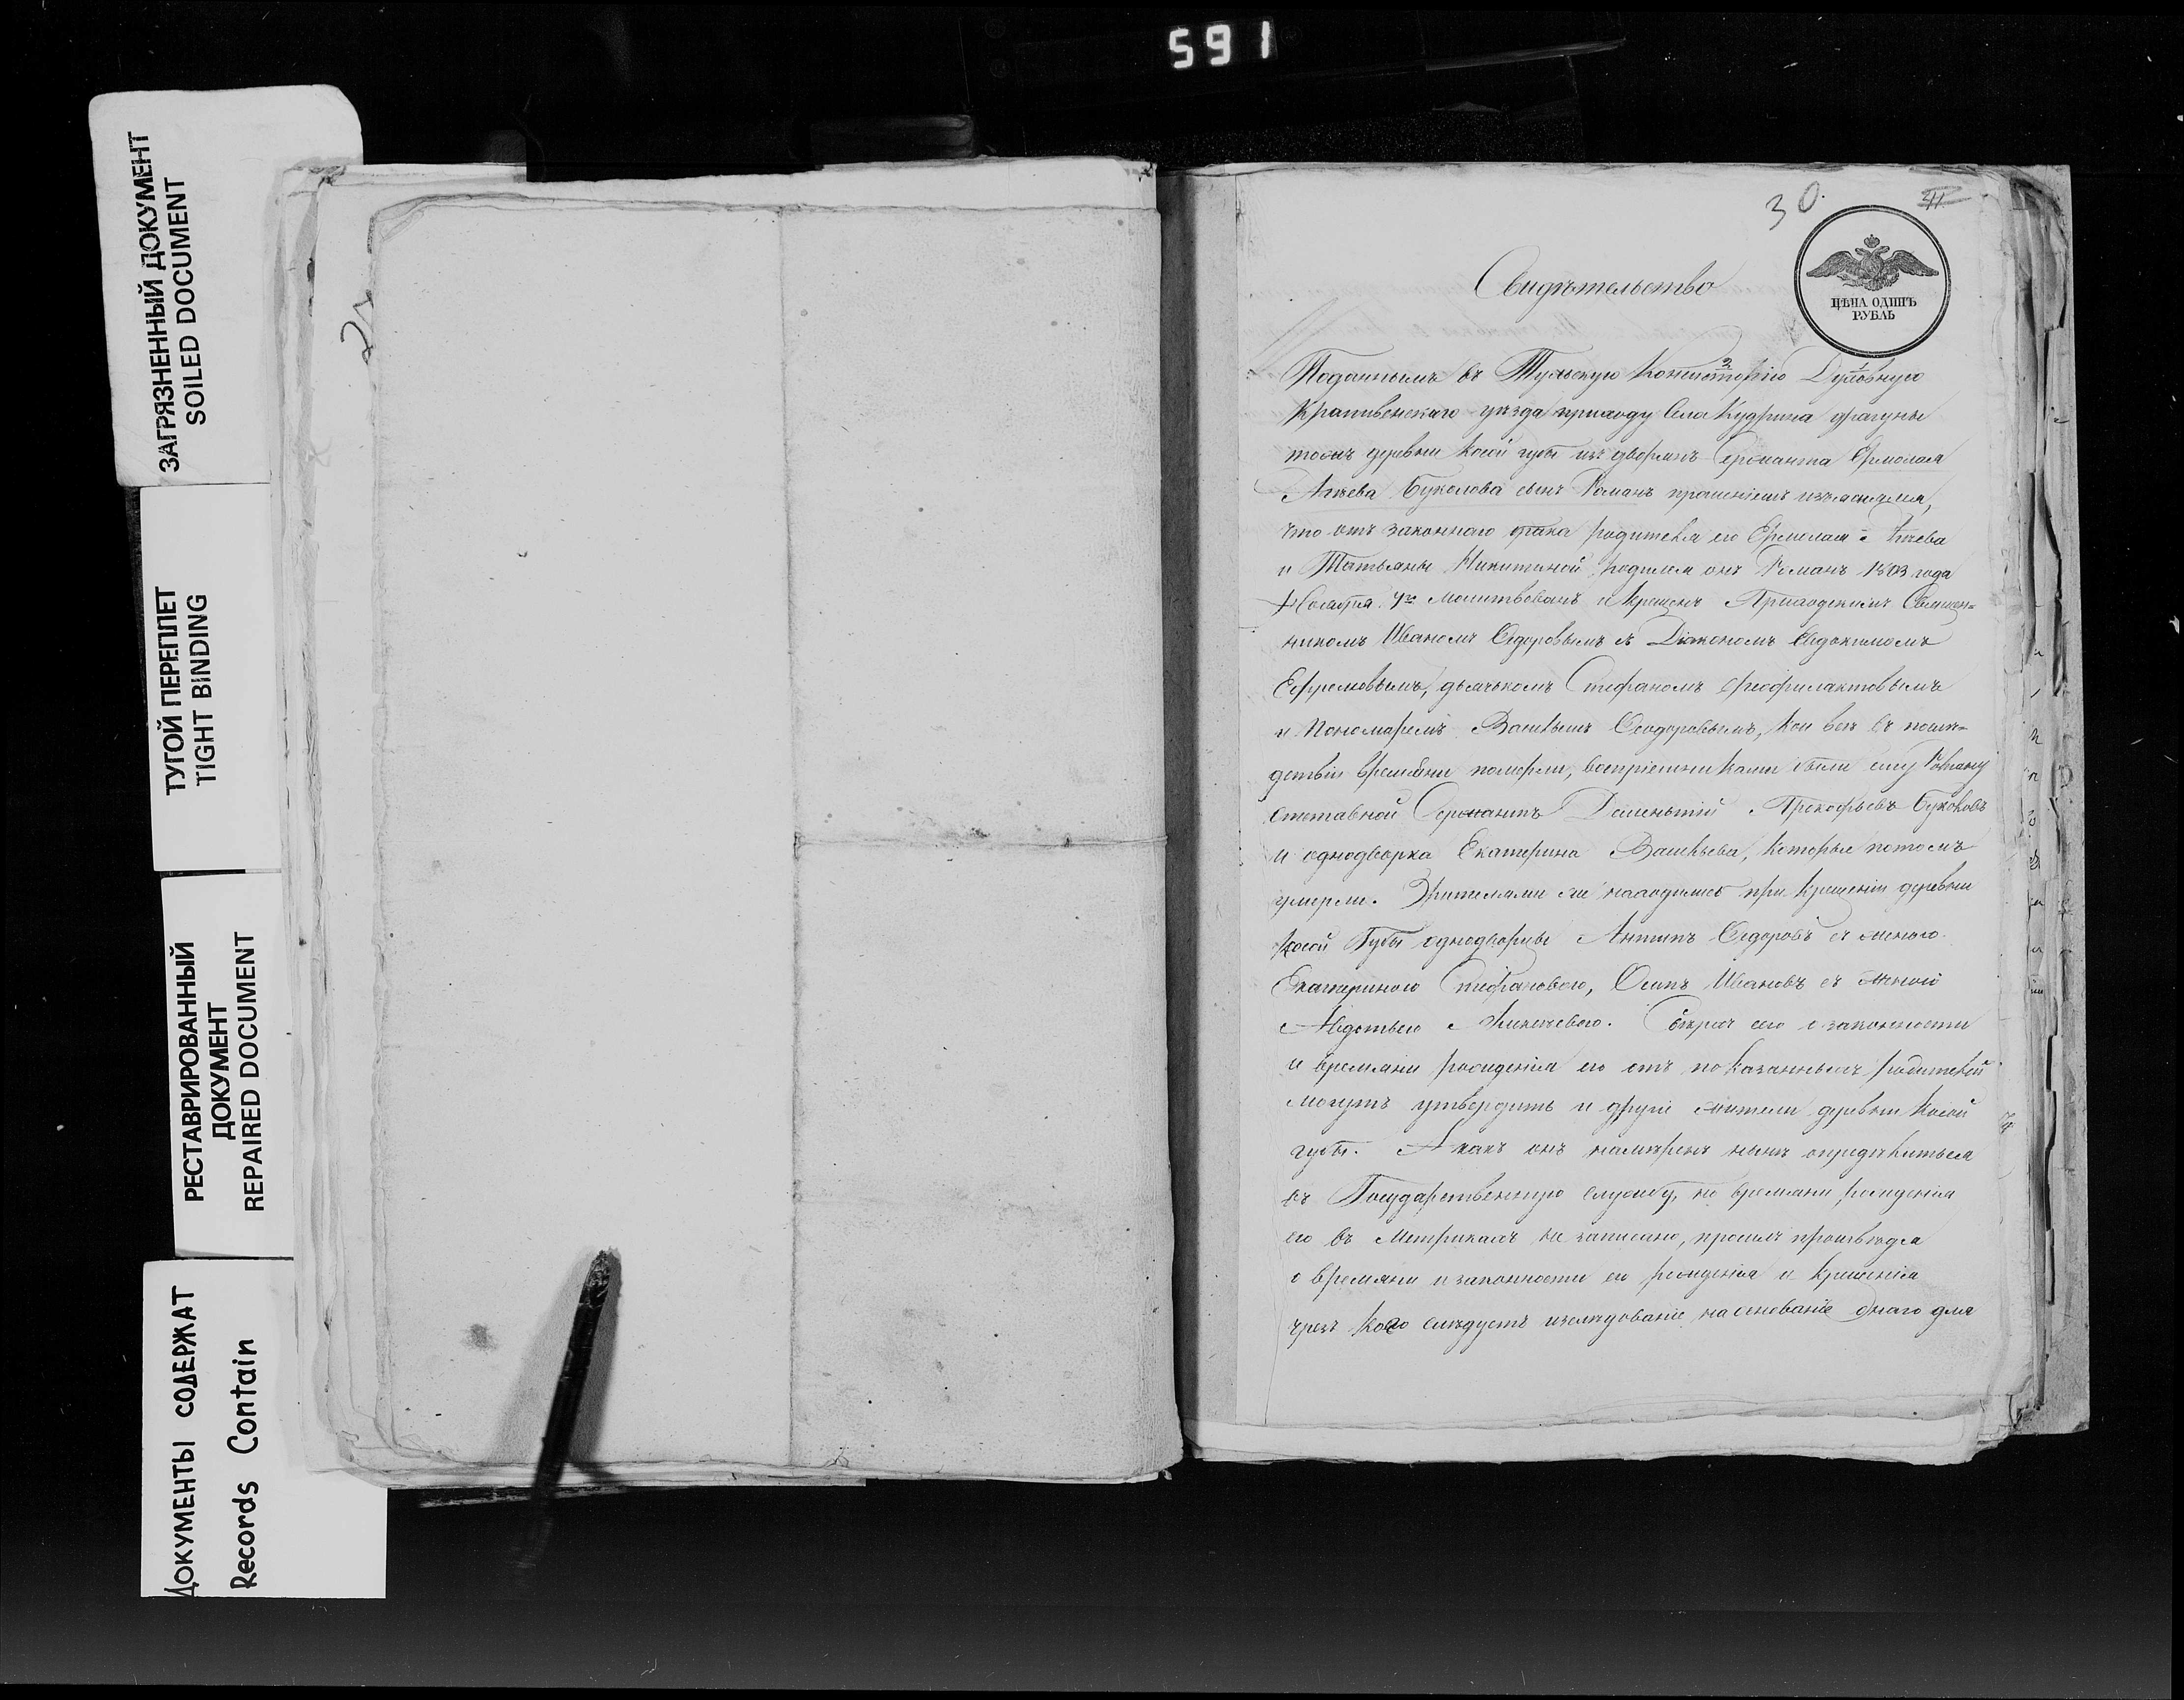 591
ЗАГРЯЗНЕННЫЙ ДОКУМЕНТ
SOILED DOCUMENT
ТУГОЙ ПЕРЕПЛЕТ
TIGHT BINDING
РЕСТАВРИРОВАННЫЙ
ДОКУМЕНТ
REPAIRED DOCUMENT
ДОКУМЕНТЫ СОДЕРЖАТ
Records Contain
30.
ЦѢНА ОДИНЪ
РУБЛЬ
Свидѣтельство
Поданнымъ въ Тульскую Консисторію Духовную
Крапивенскаго уѣзда приходу Села Кудрина
деревни Косой губы изъ дворянъ Сержанта Ермолая
Буколова сынъ Романъ прошеніемъ изъяснялся,
что отъ законнаго брака родителя его Ермолая
и Татьяны Никитиной родился онъ Романъ 1803 года
молитвованъ и крещенъ Приходскимъ Священ=
никомъ Иваномъ Ѳедоровымъ съ Діакономъ Евдокимомъ
Ефремовымъ, дьячькомъ Стефаномъ Ѳеофилактовымъ
и Пономаремъ Васильемъ Ѳеодоровымъ, кои все въ послѣ=
дствіи времяни померли, воспріемниками были ему Роману
отставной Сержантъ Дементій Прокофьевъ Буколовъ
и однодворка Екатерина Васильева, которые потомъ
умерли. Зрителями же находились при крещеніи деревни
Косой Губы однодворцы Антипъ Ѳедоровъ съ женою
Екатериною Стефановою, Осипъ Ивановъ съ женой
Авдотьею его о законности
и времяни рожденія его отъ показанныхъ родителей
могутъ утвердить и другіе жители деревни Косой
губы. А какъ онъ намѣренъ нынѣ опредѣлиться
въ Государственную службу, но времяни рожденія
его въ Метрикахъ не записано, просилъ произвесть
о времяни и законности его рожденія и крещенія
чрезъ кого слѣдуетъ изслѣдованіе, на основаніе онаго для